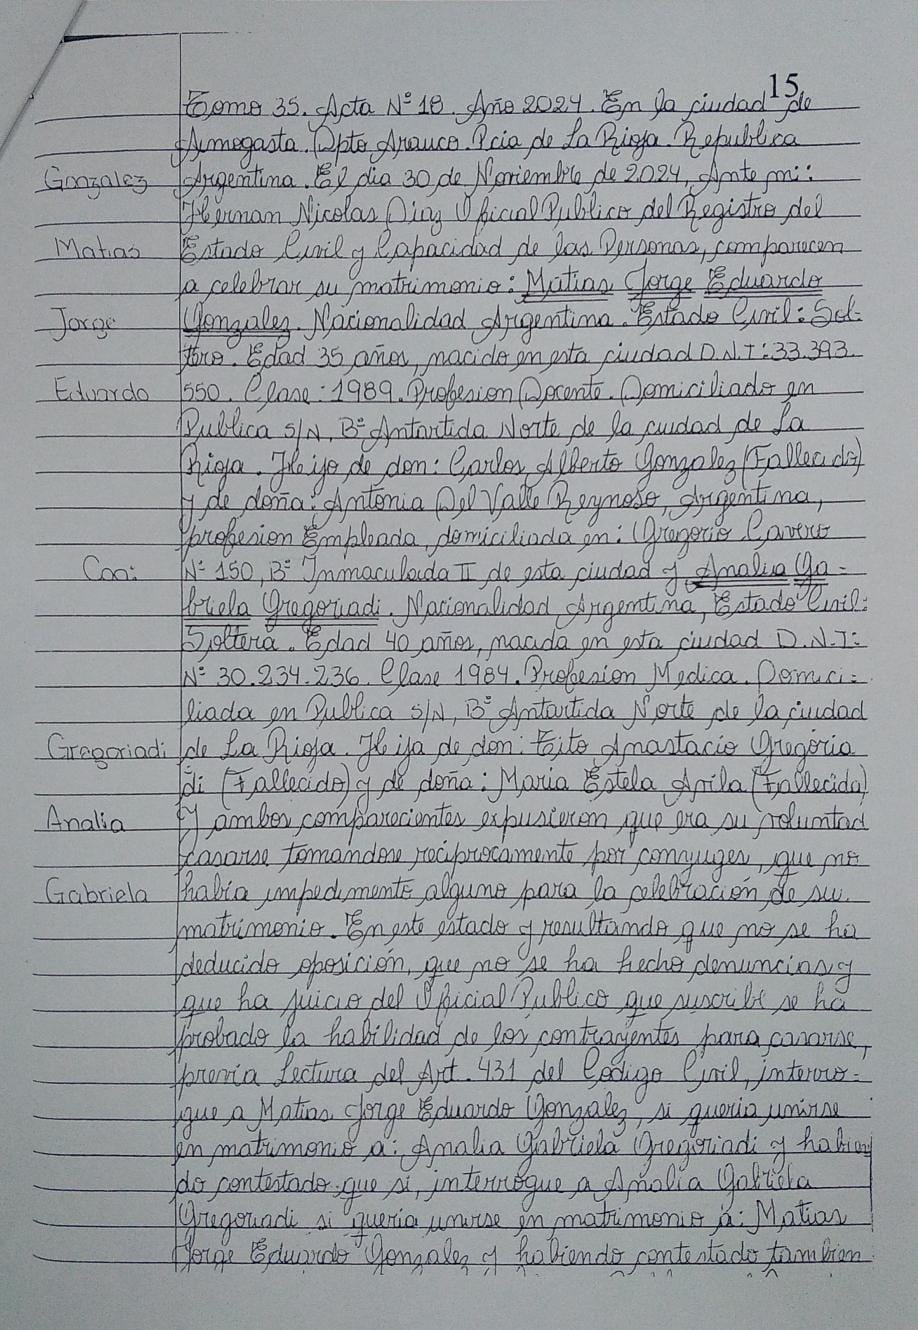 15
Tomo 35. Acta Nº 18. Año 2024. En la ciudad de
Aimogasta. Dpto Arauco. Pcia de La Rioja. Republica
Gonzalez Argentina. El dia 30 de Noviembre de 2024, Ante mi:
Hernan Nicolas Diaz Oficial Publico del Registro del
Matias Estado Civil y Capacidad de las Personas, comparecen
a celebrar su matrimonio: Matias Jorge Eduardo
Jorge Gonzalez. Nacionalidad Argentina. Estado Civil: Sol-
tero. Edad 35 años, nacido en esta ciudad D.N.I: 33.393.
Eduardo 550. Clase: 1989. Profesion Docente. Domiciliado en
Publica S/N, Bº Antartida Norte de la ciudad de La
Rioja. Hijo de don: Carlos Alberto Gonzalez (Fallecido)
y de doña: Antonia Del Valle Reynoso, Argentina,
profesion Empleada, domiciliada en: Gregorio Cavero
Con: Nº 150, Bº Inmaculada II de esta ciudad y Analia Ga-
briela Gregoriadi. Nacionalidad Argentina, Estado Civil:
Soltera. Edad 40 años, nacida en esta ciudad D.N.I:
Nº 30.234.236. Clase 1984. Profesion Medica. Domici-
liada en Publica S/N, Bº Antartida Norte de la ciudad
Gregoriadi de La Rioja. Hija de don: Tito Anastacio Gregoria
di (Fallecido) y de doña: Maria Estela Avila (Fallecida)
Analia Y ambos comparecientes expusieron que era su voluntad
casarse tomandose reciprocamente por conyuges, que no
Gabriela habia impedimento alguno para la celebración de su
matrimonio. En este estado y resultando que no se ha
deducido oposición, que no se ha hecho denuncias y
que ha juicio del Oficial Publico que suscribe se ha
probado la habilidad de los contrayentes para casarse,
previa Lectura del Art. 431 del Codigo Civil, interro-
gue a Matias Jorge Eduardo Gonzalez, si queria unirse
en matrimonio a: Analia Gabriela Gregoriadi y habien
do contestado que si, interrogue a Analia Gabriela
Gregoriadi si queria unirse en matrimonio a: Matias
Jorge Eduardo Gonzalez y habiendo contestado tambien